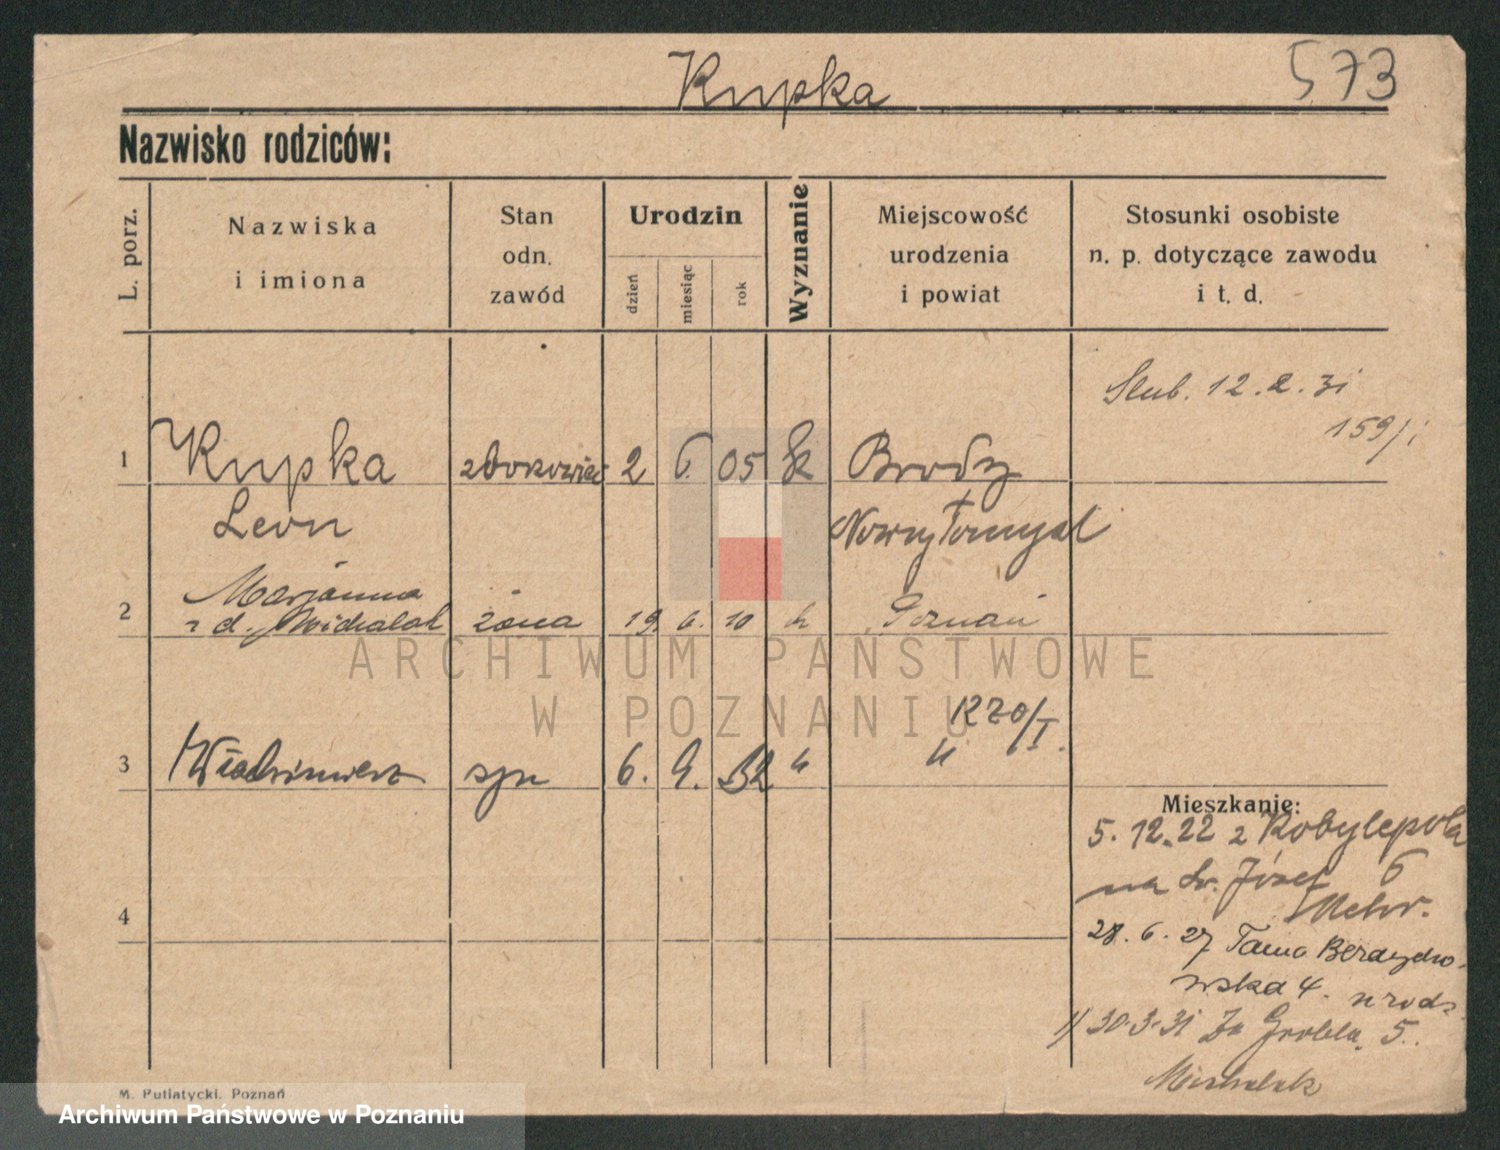 Kupka
573
Nazwisko rodziców:
L. porz.
Nazwiska
i imiona
Stan
odn.
zawód
Urodzin
dzień
miesiąc
rok
Wyznanie
Miejscowość
urodzenia
i powiat
Stosunki osobiste
n. p. dotyczące zawodu
i t. d.
Ślub. 12.2.31
159/I
1 Kupka 2 6. 05 Brody
Leon
Nowy Tomysl
Marjanna
2 z d. Michalak żona 19. 6. 10 k Poznań
R 20/I.
3 Włodzimierz syn 6. 9. 32 " "
Mieszkanie:
5.12.22 z Kobylepola
na św. Józef 6
28.6.27 Tama Berdycho-
wska 4. u rodz.
1/ 30.3.31 Za Groblą 5.
Michalak
4
M. Putiatycki, Poznań
ARCHIWUM PAŃSTWOWE
W POZNANIU
Archiwum Państwowe w Poznaniu